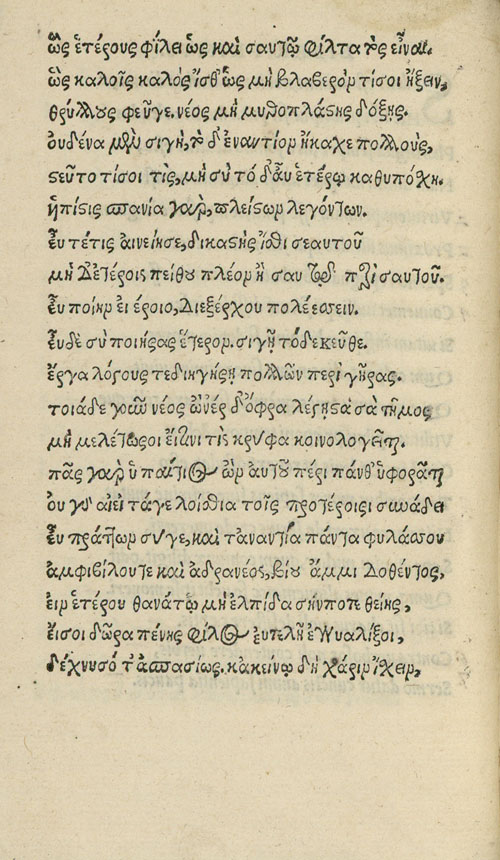 ὣς ἑτέρους φίλει ὡς καὶ σαυτῷ φίλτατος εἶναι.
ὣς καλοῖς καλὸς ἴσθ' ὡς μὴ βλαβερόν τίσοι ἥξειν,
θρύλλους φεῦγε, νέος μὴ μυθοπλάστης δόξῃς.
οὐδένα σιγὴ, τὸ δ' ἐναντίον ἤκαχε πολλοὺς,
ευτο τίσοι τὶς, μὴ σὺ τό δ' αὖ ἑτέρῳ καθυπόχη.
ἡ πίστις σπανία γαρ, πλείστων λεγόντων.
εὖ τέ τις αἰνείησε, δικαστὴς ἴσθι σεαυτοῦ
μὴ δ' ἑτέροις πείθου πλέον ἢ σαυτῷ περὶ σαυτοῦ.
εὖ ποίην εἰ ἔροιο, διεξέρχου πολέεσσιν.
εὖ δὲ σὺ ποιήσας ἕτερον. σιγῇ τόδε κεῦθε.
ἔργα λόγους τε διηγήσῃ πολλῶν περὶ γήρας.
τοιάδε γοῦν νέος ἀνὲρ δόφρα λέγησθα σὰ τῆμος
μὴ μελέτω σοι εἰ τὶς κρύφα κοινολογεῖται.
πᾶς γαρ ὑπαίτιος ὢν αὐτοῦ πέρι πάνθ' ὑφορᾶται
οὐ γὰρ αἰεὶ τάγε λοίσθια τοῖς προτέροισι συνάδει
εὖ πράττων σύγε, καὶ τἀναντία πάντα φυλάσσου
ἀμφιβίλου τε καὶ ἀδρανέος, βίου ἄμμι δοθέντος,
εἰν ἑτέρου θανάτῳ μὴ ἐλπίδα σήν ποτε θείης,
εἴσοι δῶρα πένης φίλος εὐτελῆ ἐγγυαλίξοι,
δέχνυσό τ' ἀσπασίως, κἀκείνῳ δὴ χάριν ἴχειν,